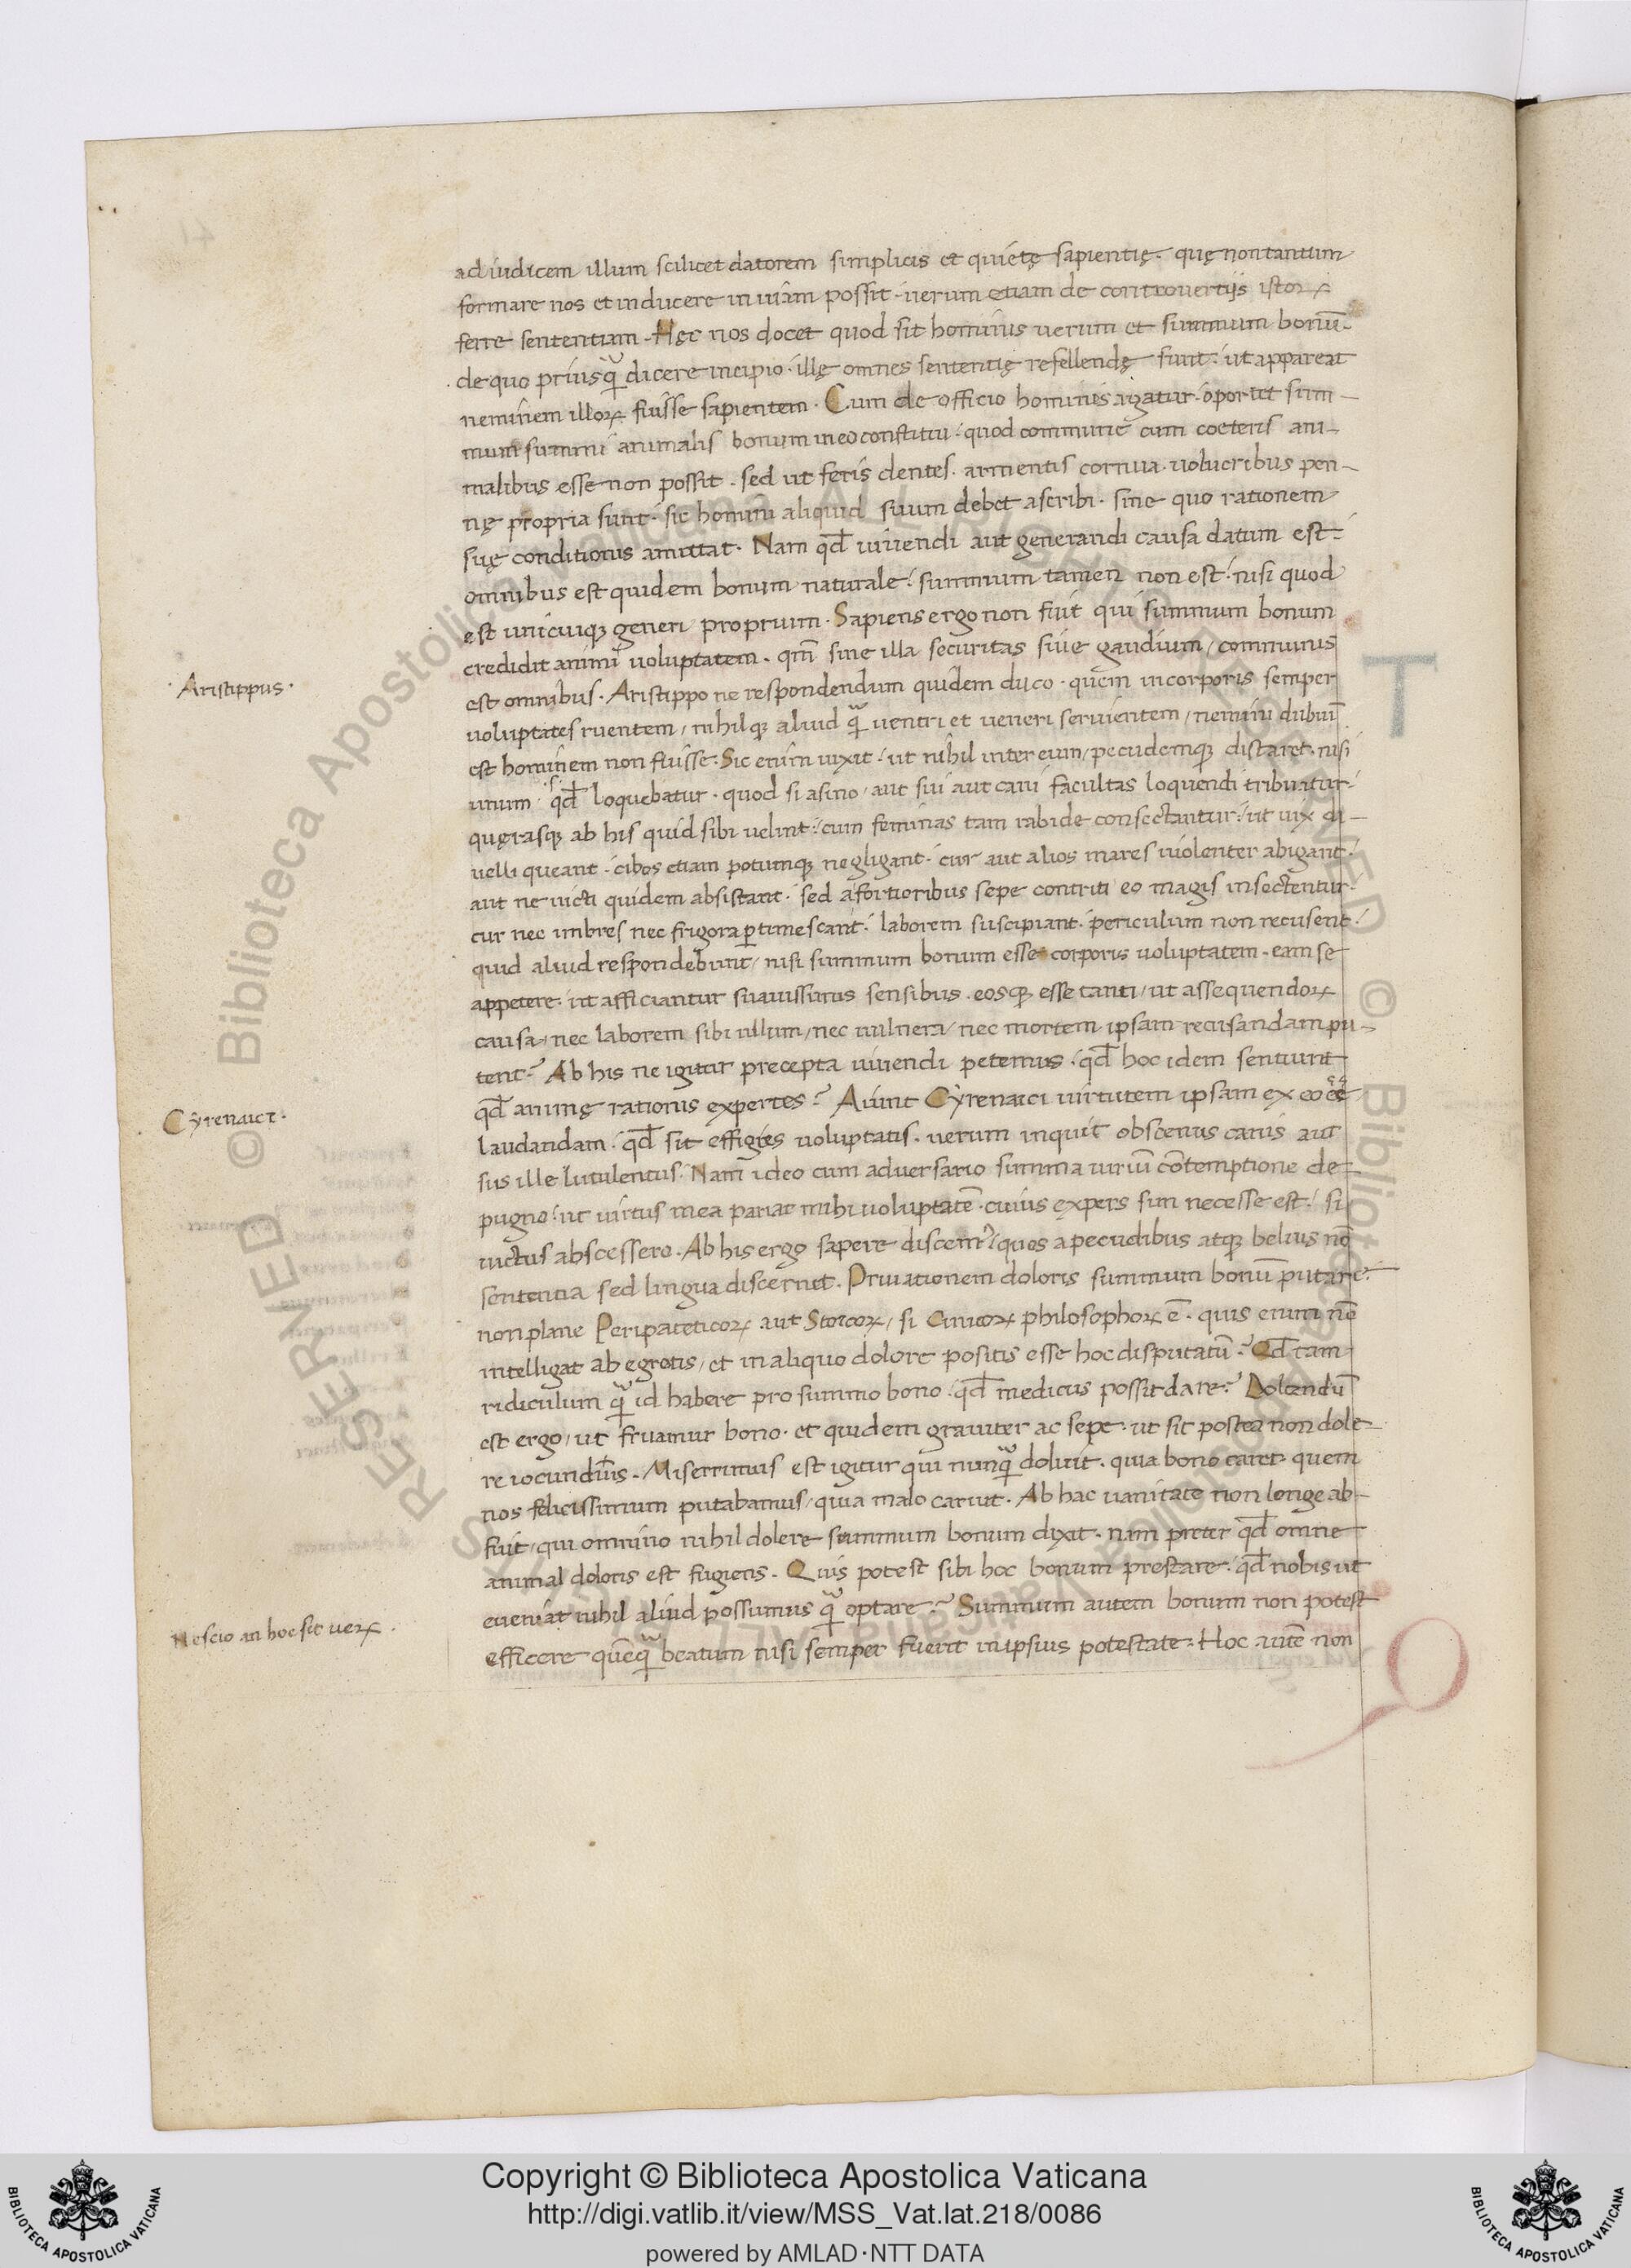 ad iudicem illum scilicet datorem simplicis et quietę sapientię. quę non tantum
formare nos et inducere in uiam possit. uerum etiam de controuertiis istoꝝ
ferre sententiam. Hęc nos docet quod sit hominis uerum et summum bonū.
de quo priusꝙ̃ dicere incipio. illę omnes sententię refellendę sunt. ut appareat
neminem illoꝝ fuisse sapientem. Cum de officio hominis agatur. oportet sum-
mum summi animalis bonum in eo constitui. quod commune cum coeteris ani-
malibus esse non possit. sed ut feris dentes. armentis cornua. uolucribus pen-
nę propria sunt. sic homini aliquid suum debet ascribi. sine quo rationem
suę conditionis amittat. Nam qd̄ uiuendi aut generandi causa datum est.
omnibus est quidem bonum naturale. summum tamen non est. nisi quod
est unicuiqꝫ generi proprium. Sapiens ergo non fuit qui summum bonum
credidit animi uoluptatem. qm̄ siue illa securitas siue gaudium / communis
Aristippus.
est omnibus. Aristippo ne respondendum quidem duco. quem in corporis semper
uoluptates ruentem / nihilqꝫ aliud ꝙ̃ uentri et ueneri seruientem / nemini dubiū
est hominem non fuisse. Sic enim uixit. ut nihil inter eum / pecudemqꝫ distaret. nisi
unum. qd̄ loquebatur. quod si asino / aut sui aut cani facultas loquendi tribuatur.
quęrasqꝫ ab his quid sibi uelint. cum feminas tam rabide consectantur. ut uix di-
uelli queant. cibos etiam potumqꝫ negligant. cur aut alios mares uiolenter abigant.
aut ne uicti quidem absistant. sed a fortioribus sepe contriti eo magis insectentur.
cur nec imbres nec frigora ꝑtimescant. laborem suscipiant. periculum non recusent.
quid aliud respondebunt / nisi summum bonum esse corporis uoluptatem. eam se
appetere. ut afficiantur suauissimis sensibus. eosqꝫ esse tanti / ut assequendoꝝ
causa / nec laborem sibi ullum / nec uulnera / nec mortem ipsam recusandam pu-
tent? Ab his ne igitur precepta uiuendi petemus. qd̄ hoc idem sentiunt
qd̄ animę rationis expertes? Aiunt Cyrenaici uirtutem ipsam ex eo eē
Cyrenaici.
laudandam. qd̄ sit effigies uoluptatis. uerum inquit obscenus canis aut
sus ille lutulentus. Nam ideo cum aduersario summa uiriū cōtemptione de-
pugno. ut uirtus mea pariat mihi uoluptatē. cuius expers sim necesse est. si
uictus abscessero. Ab his ergo sapere discemꝰ. quos a pecudibus atqꝫ beluis nō
sententia sed lingua discernit. Priuationem doloris summum bonū putare.
non plane Peripateticoꝝ aut Stoicoꝝ / si Clinicoꝝ philosophoꝝ ē. quis enim nō
intelligat ab egrotis / et in aliquo dolore positis esse hoc disputatū? Qd̄ tam
ridiculum ꝙ̃ id habere pro summo bono. qd̄ medicus possit dare? Dolendū
est ergo / ut fruamur bono. et quidem grauiter ac sepe. ut sit postea non dole-
re iocundius. Miserrimus est igitur qui nunꝙ̃ doluit. quia bono caret. quem
nos felicissimum putabamus / quia malo caruit. Ab hac uanitate non longe ab-
fuit / qui omnino nihil dolere summum bonum dixit. nam preter qd̄ omne
animal doloris est fugiens. Quis potest sibi hoc bonum prestare. qd̄ nobis ut
eueniat nihil aliud possumus ꝙ̃ optare? Summum autem bonum non potest
Nescio an hoc sit ueꝝ.
efficere quēꝙ̃ beatum nisi semper fuerit in ipsius potestate. Hoc autē non
T
Q
RESERVED © Biblioteca Apostolica Vaticana ALL RIGHTS RESERVED © Biblioteca Apostolica Vaticana ALL RIGHTS
Copyright © Biblioteca Apostolica Vaticana
http://digi.vatlib.it/view/MSS_Vat.lat.218/0086
powered by AMLAD·NTT DATA
BIBLIOTECA APOSTOLICA VATICANA
BIBLIOTECA APOSTOLICA VATICANA